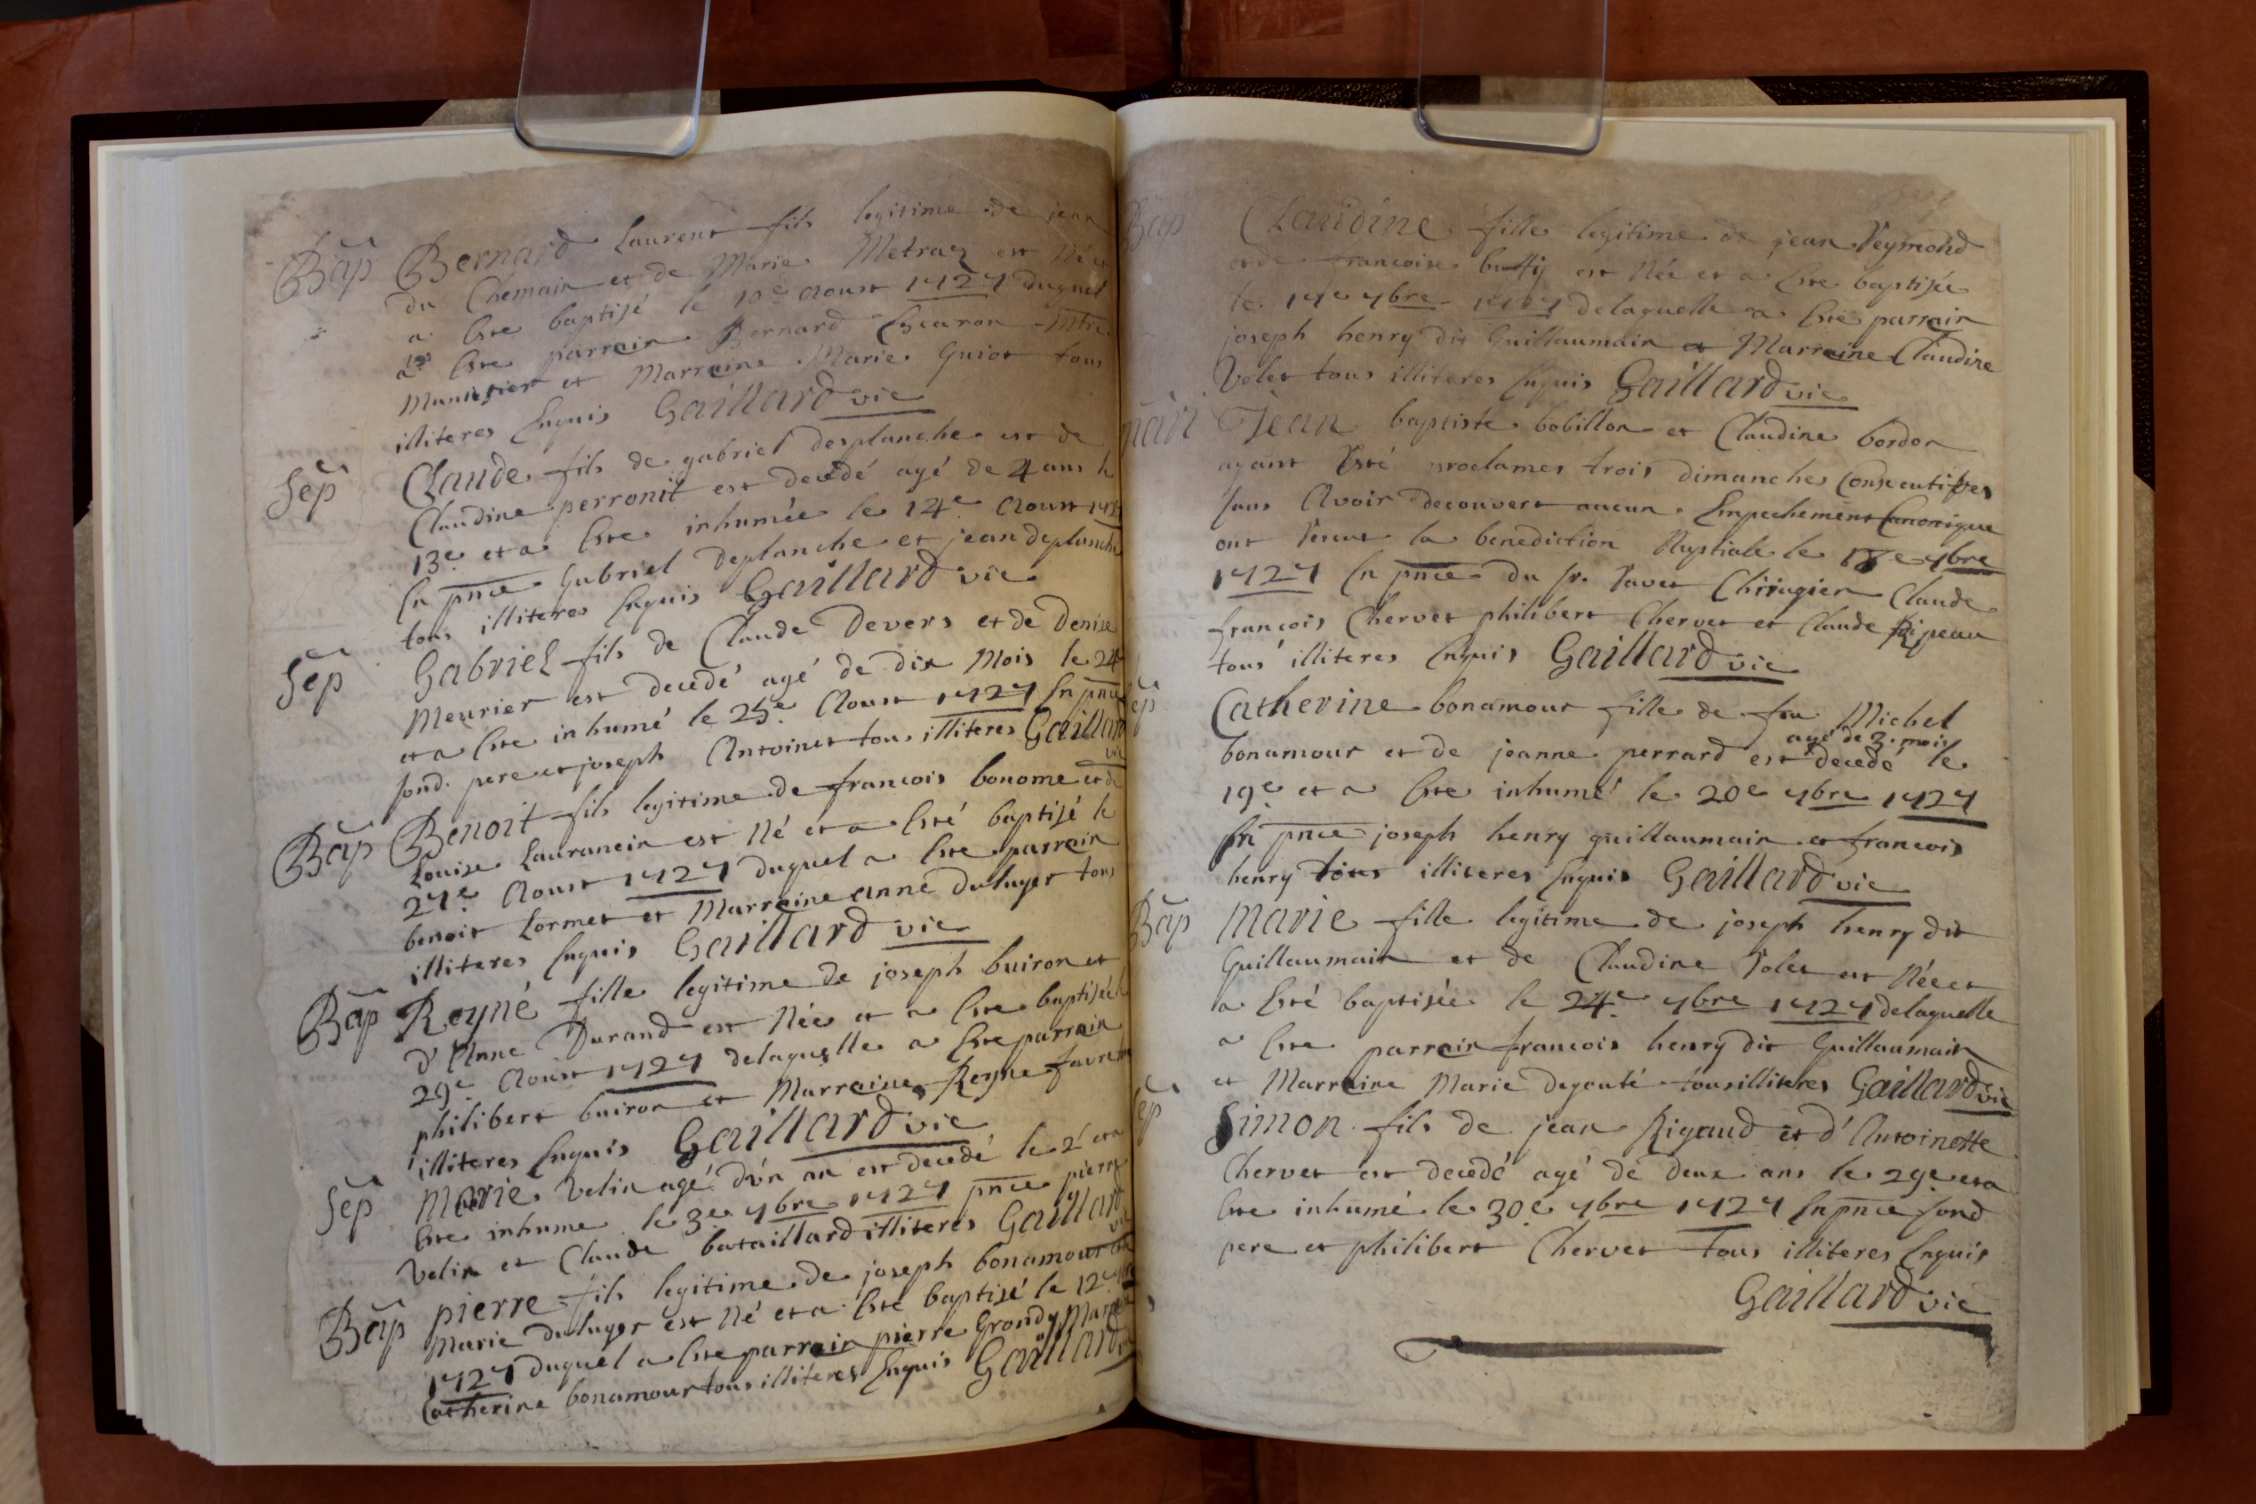 Bap Bernard Laurent fils legitime de jean
du Chemain et de Marie Metraz est Né et
a este baptisé le 10e Aoust 1727 duquel
a este parrain Bernard Charon Mtre
Munitier et Marraine Marie Guiot tous
illiteres Enquis Gaillard vic
Sep Claude fils de gabriel desplanche et de
Claudine perronit est decedé agé de 4 ans le
13e et a este inhumée le 14e Aoust 1727
En pnce Gabriel deplanche et jean deplanche
tous illiteres Enquis Gaillard vic
Sep Gabriel fils de Claude Devers et de Denise
Meurier est decedé agé de dix Mois le 24e
et a este inhumé le 25e Aoust 1727 En pnce
sond. pere et joseph Antoinet tous illiteres Gaillard
vic
Bap Benoit fils legitime de francois bonome et de
Louise Laurancin est Né et a esté baptisé le
27e Aoust 1727 duquel a este parrain
benoit Lormet et Marraine anne duluger tous
illiteres Enquis Gaillard vic
Bap Reyné fille legitime de joseph buiron et
d'Anne Durand est Née et a este baptisée le
29e Aoust 1727 delaquelle a este parrain
philibert buiron et Marraine Reyne favre
illiteres Enquis Gaillard vic
Sep Marie Velin agé d'un an est decedé le 2e et a
este inhume le 3e 7bre 1727 pnce pierre
Velin et Claude bataillard illiteres Gaillard
vic
Bap pierre fils legitime de joseph bonamour et de
Marie duluger est Né et a este baptisé le 12e 7bre
1727 duquel a este parrain pierre Grondy Marraine
Catherine bonamour tous illiteres Enquis Gaillard
Bap Claudine fille legitime de jean Reymond
et de francoise buffy est Née et a este baptisée
le 17e 7bre 1727 delaquelle a este parrain
joseph henry dit Guillaumain et Marraine Claudine
Volet tous illiteres Enquis Gaillard vic
mari Jean baptiste bobillon et Claudine bordon
ayant esté proclames trois dimanches Consecutifves
sans Avoir decouvert aucun Empechement Canonique
ont Receut la benediction Nuptiale le 18e 7bre
1727 En pnce du sr. Favet Chirugien Claude
françois Chervet philibert Chervet et Claude Ripeau
tous illiteres Enquis Gaillard vic
Sep Catherine bonamour fille de feu Michel
bonamour et de jeanne perrard est decedé agé de 3. mois le
19e et a este inhumé le 20e 7bre 1727
En pnce joseph henry guillaumain et francois
henry tous illiteres Enquis Gaillard vic
Bap Marie fille legitime de joseph henry dit
Guillaumain et de Claudine Volet est Née et
a esté baptisée le 24e 7bre 1727 delaquelle
a este parrain francois henry dit Guillaumain
et Marraine Marie degouté tous illiteres Gaillard vic
Sep Simon fils de jean Rigaud et d'Antoinette
Chervet est decedé agé de deux ans le 29e et a
este inhumé le 30e 7bre 1727 En pnce sond
pere et philibert Chervet tous illiteres Enquis
Gaillard vic